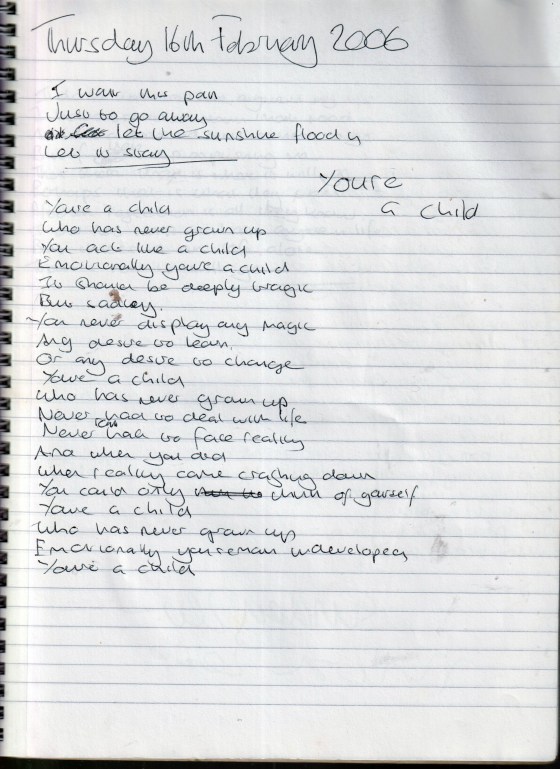 Thursday 16th February 2006
I want this pain
Just to go away
let the sunshine flood in
Let it stay
You're
a child
You're a child
Who has never grown up
You act like a child
Emotionally you're a child
It should be deeply tragic
But sadley.
You never display any magic
Any desire to learn.
Or any desire to change
You're a child
Who has never grown up
Never had to deal with life
Never had to face reality
And when you did
When reality came crashing down
You could only think of yourself
You're a child
Who has never grown up
Emotionally you remain undeveloped
You're a child